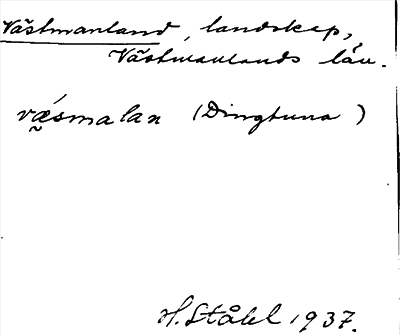 Västmanland, landskap,
Västmanlands län.
vǽ̰smalan (Dingtuna)
H. Ståhl 1937.